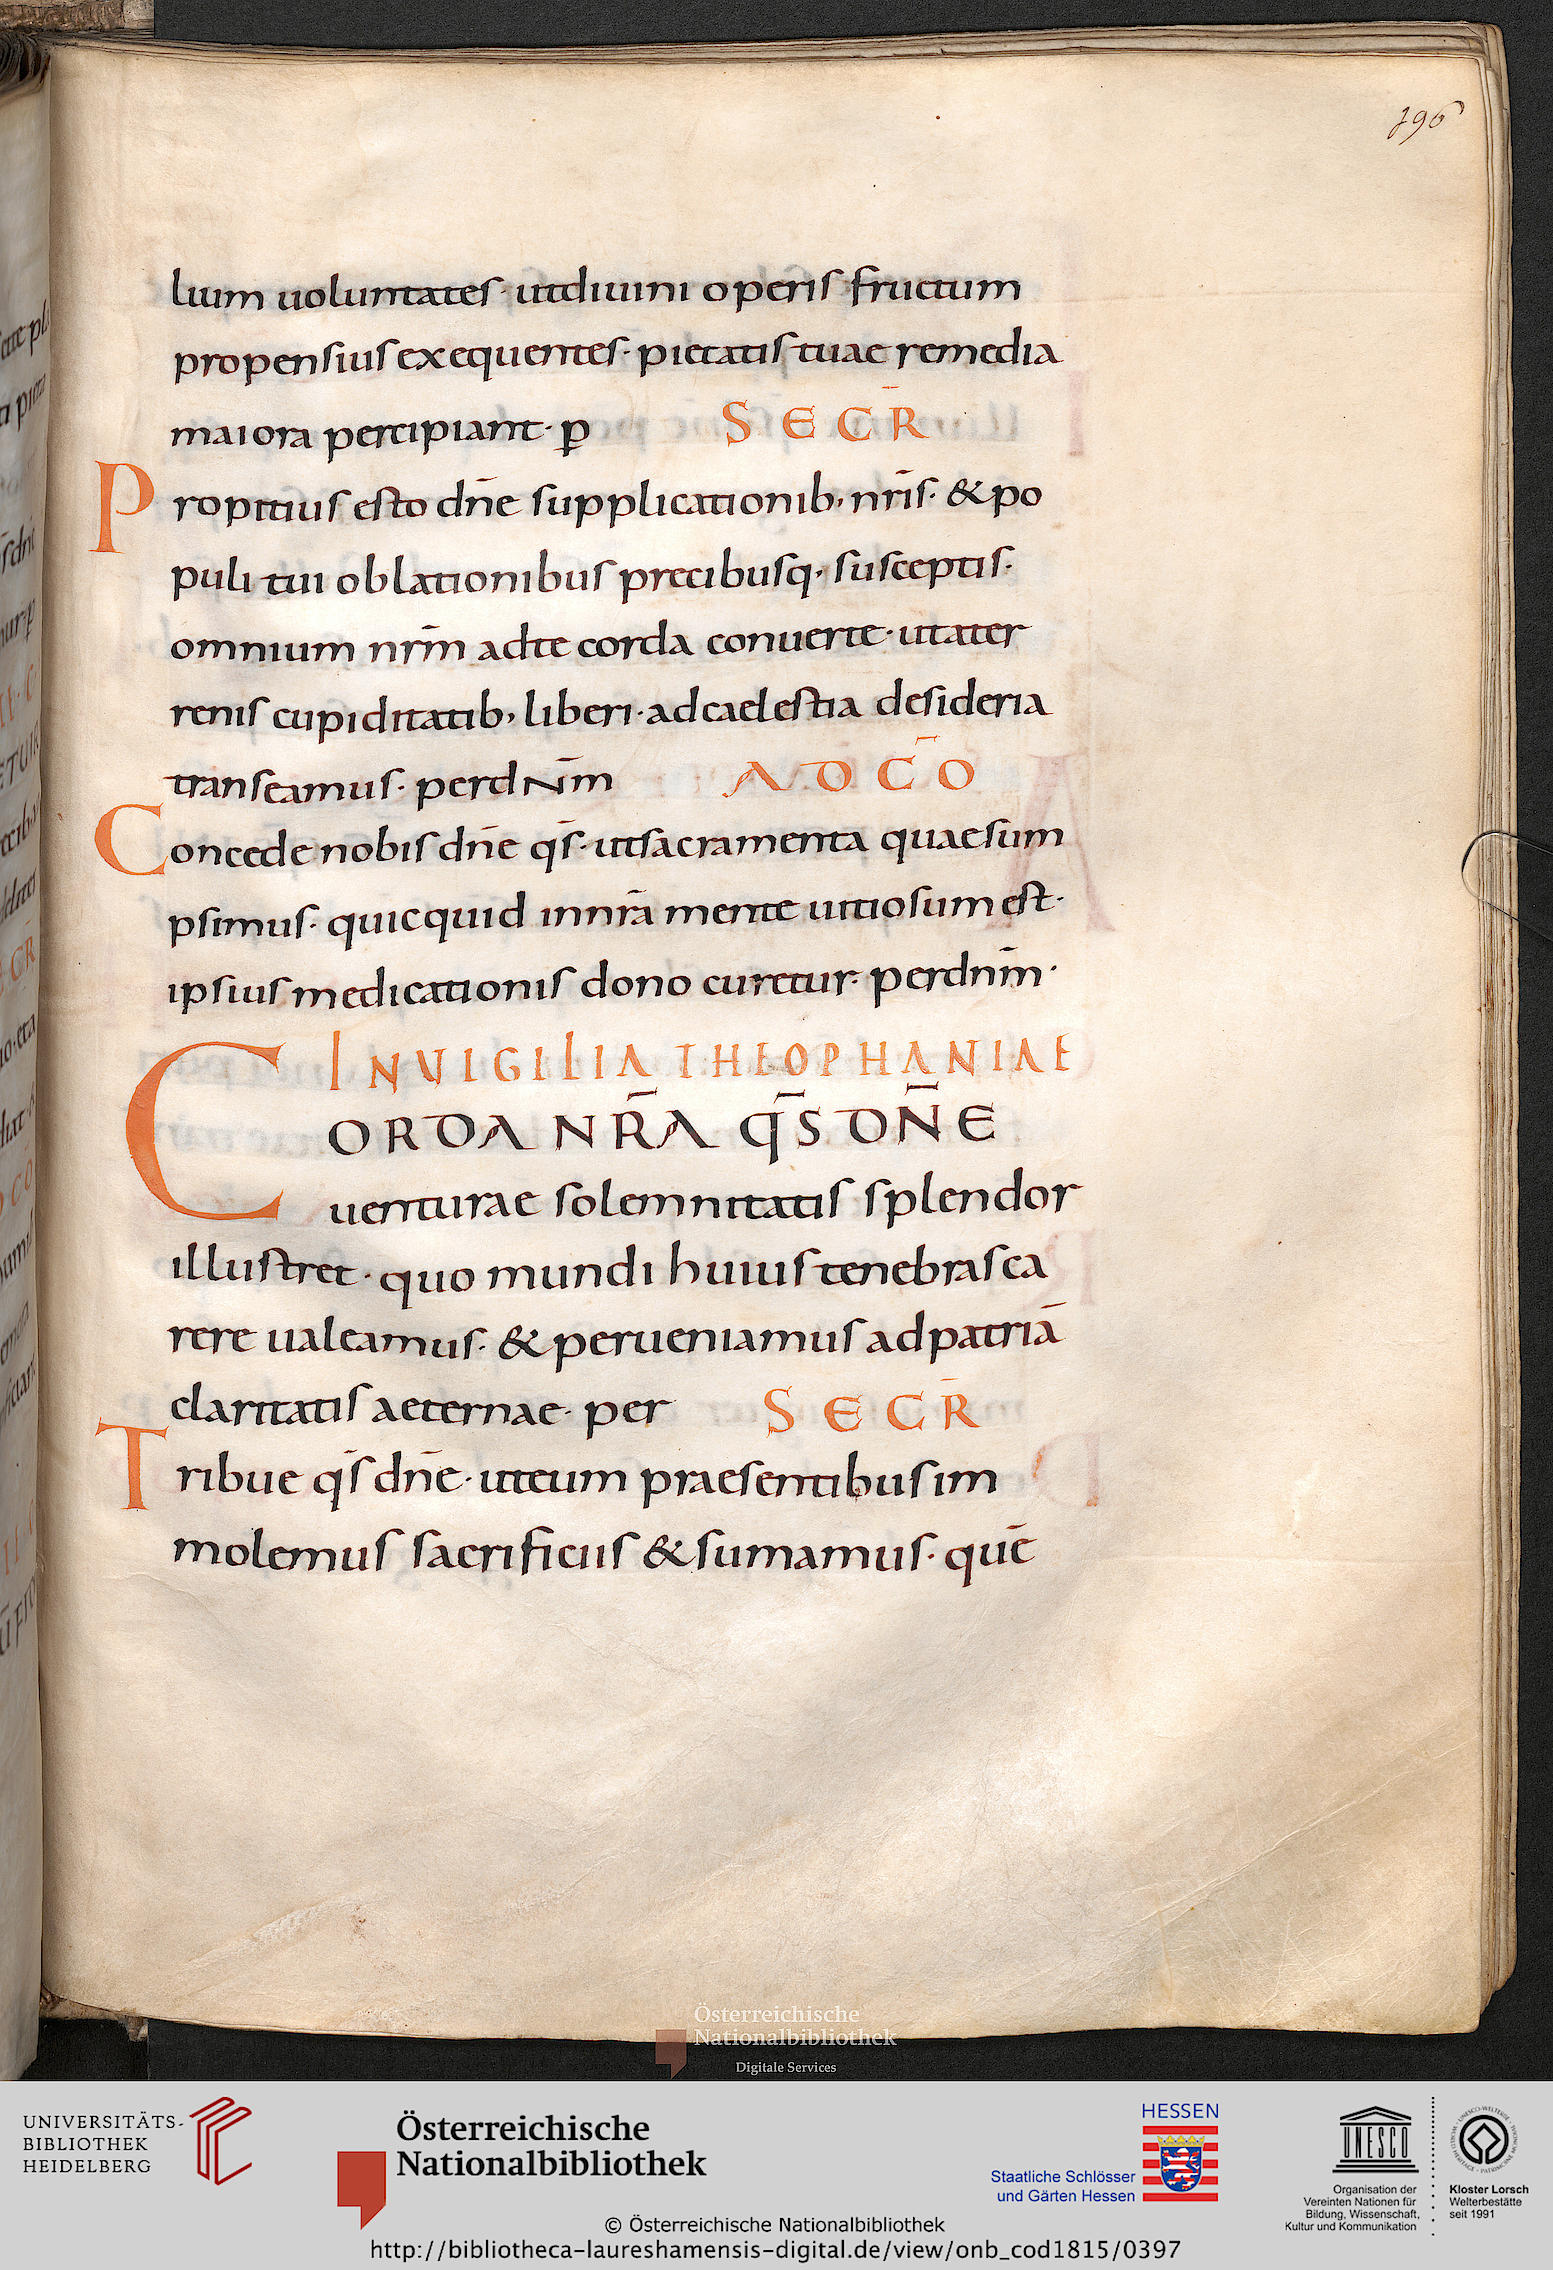 196
lium uoluntates· utdiuini operis fructum
propensius exequentes· pietatis tuae remedia
maiora percipiant· p̲ SECR̄
Propitius esto dn̄e supplicationib; nr̄is· & po
puli tui oblationibus precibusq; susceptis·
omnium nr̄m adte corda conuerte· utater
renis cupiditatib; liberi· adcaelestia desideria
transeamus· perdnm̄ AD C̄O
Concede nobis dn̄e qs̄· utsacramenta quaesum
psimus· quicquid innrā mente uitiosum est·
ipsius medicationis dono curetur· perdnm̄·
IN UIGILIA THEOPHANIAE
CORDA NR̄A QS̄ DN̄E
uenturae solemnitatis splendor
illustret· quo mundi huius tenebras ca
rere ualeamus· & perueniamus adpatriā
claritatis aeternae· per SECR̄
Tribue qs̄ dn̄e· uteum praesentibus im
molemus sacrificiis & sumamus· quē
Österreichische
Nationalbibliothek
Digitale Services
UNIVERSITÄTS-
BIBLIOTHEK
HEIDELBERG
Österreichische
Nationalbibliothek
HESSEN
Staatliche Schlösser
und Gärten Hessen
UNESCO
Organisation der
Vereinten Nationen für
Bildung, Wissenschaft,
Kultur und Kommunikation
Kloster Lorsch
Welterbestätte
seit 1991
© Österreichische Nationalbibliothek
http://bibliotheca-laureshamensis-digital.de/view/onb_cod1815/0397